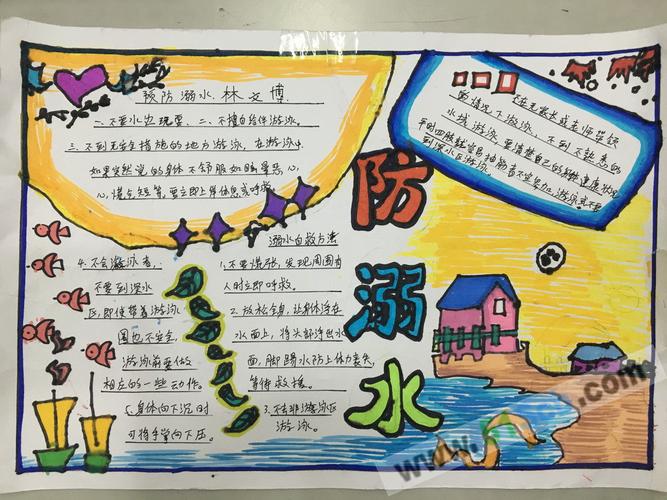 预防溺水 林文博
一、不要水边玩耍、二、不擅自结伴游泳。
三、不到无安全措施的地方游泳，在游泳中，
如果突然说的身体不舒服如眩晕恶心，
心慌气短等要立即上岸休息或呼救。
不在无家长或老师带领
的情况下游泳、不到不熟悉的
水域游泳，要清楚自己的身体健康状况
平时四肢就容易抽筋者不宜参加游泳或不要
到深水区游泳。
防
溺
水
4.不会游泳者，
不要到深水
区，即使带着游泳
圈也不安全，
游泳前要做
相应的一些动作。
5.身体向下沉时
可将手掌向下压。
溺水自救方法
1.不要慌张，发现周围有
人时立即呼救。
2.放松全身，让身体浮在
水面上，将头部浮出水
面，脚踢水防止体力丧失，
等待救援。
3.不去非游泳区
游泳。